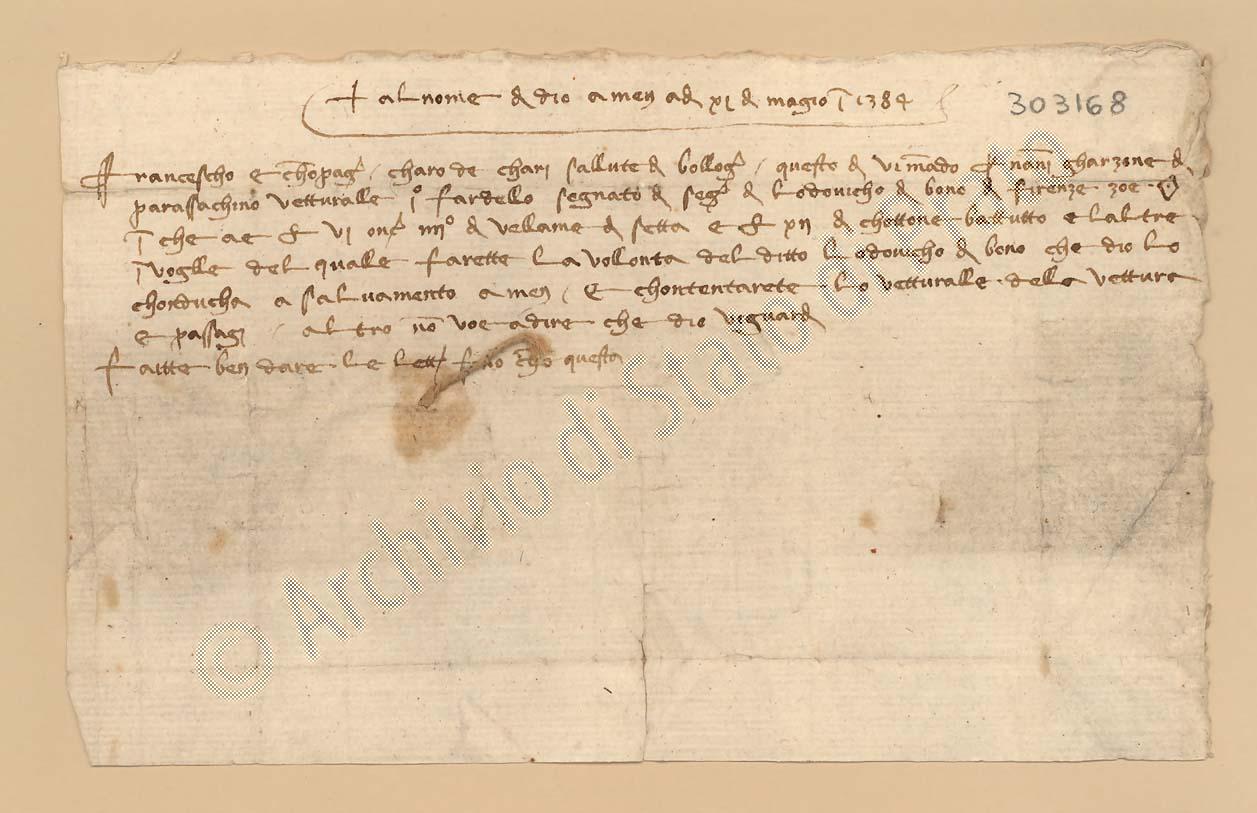 + al nome d dio amen ad xj d magio 1384
303168
Francescho e chopag charo de chari sallute d bollog questo d vi mado nani gharzone d
parassachino vetturalle jo fardello segnato d seg d Lodovicho d bono d firenze zoe
che ae vj onc iiijo d vellame d setta e xij d chottone battutto e l altre
jvoglle del qualle farette la vollonta del ditto Lodovicho d bono che dio lo
chonducha a salvamento amen e chontentarete lo vetturalle della vettura
e passagi altro no voe a dire che dio vi guard
faitte ben dare le lett questa
© Archivio di Stato di